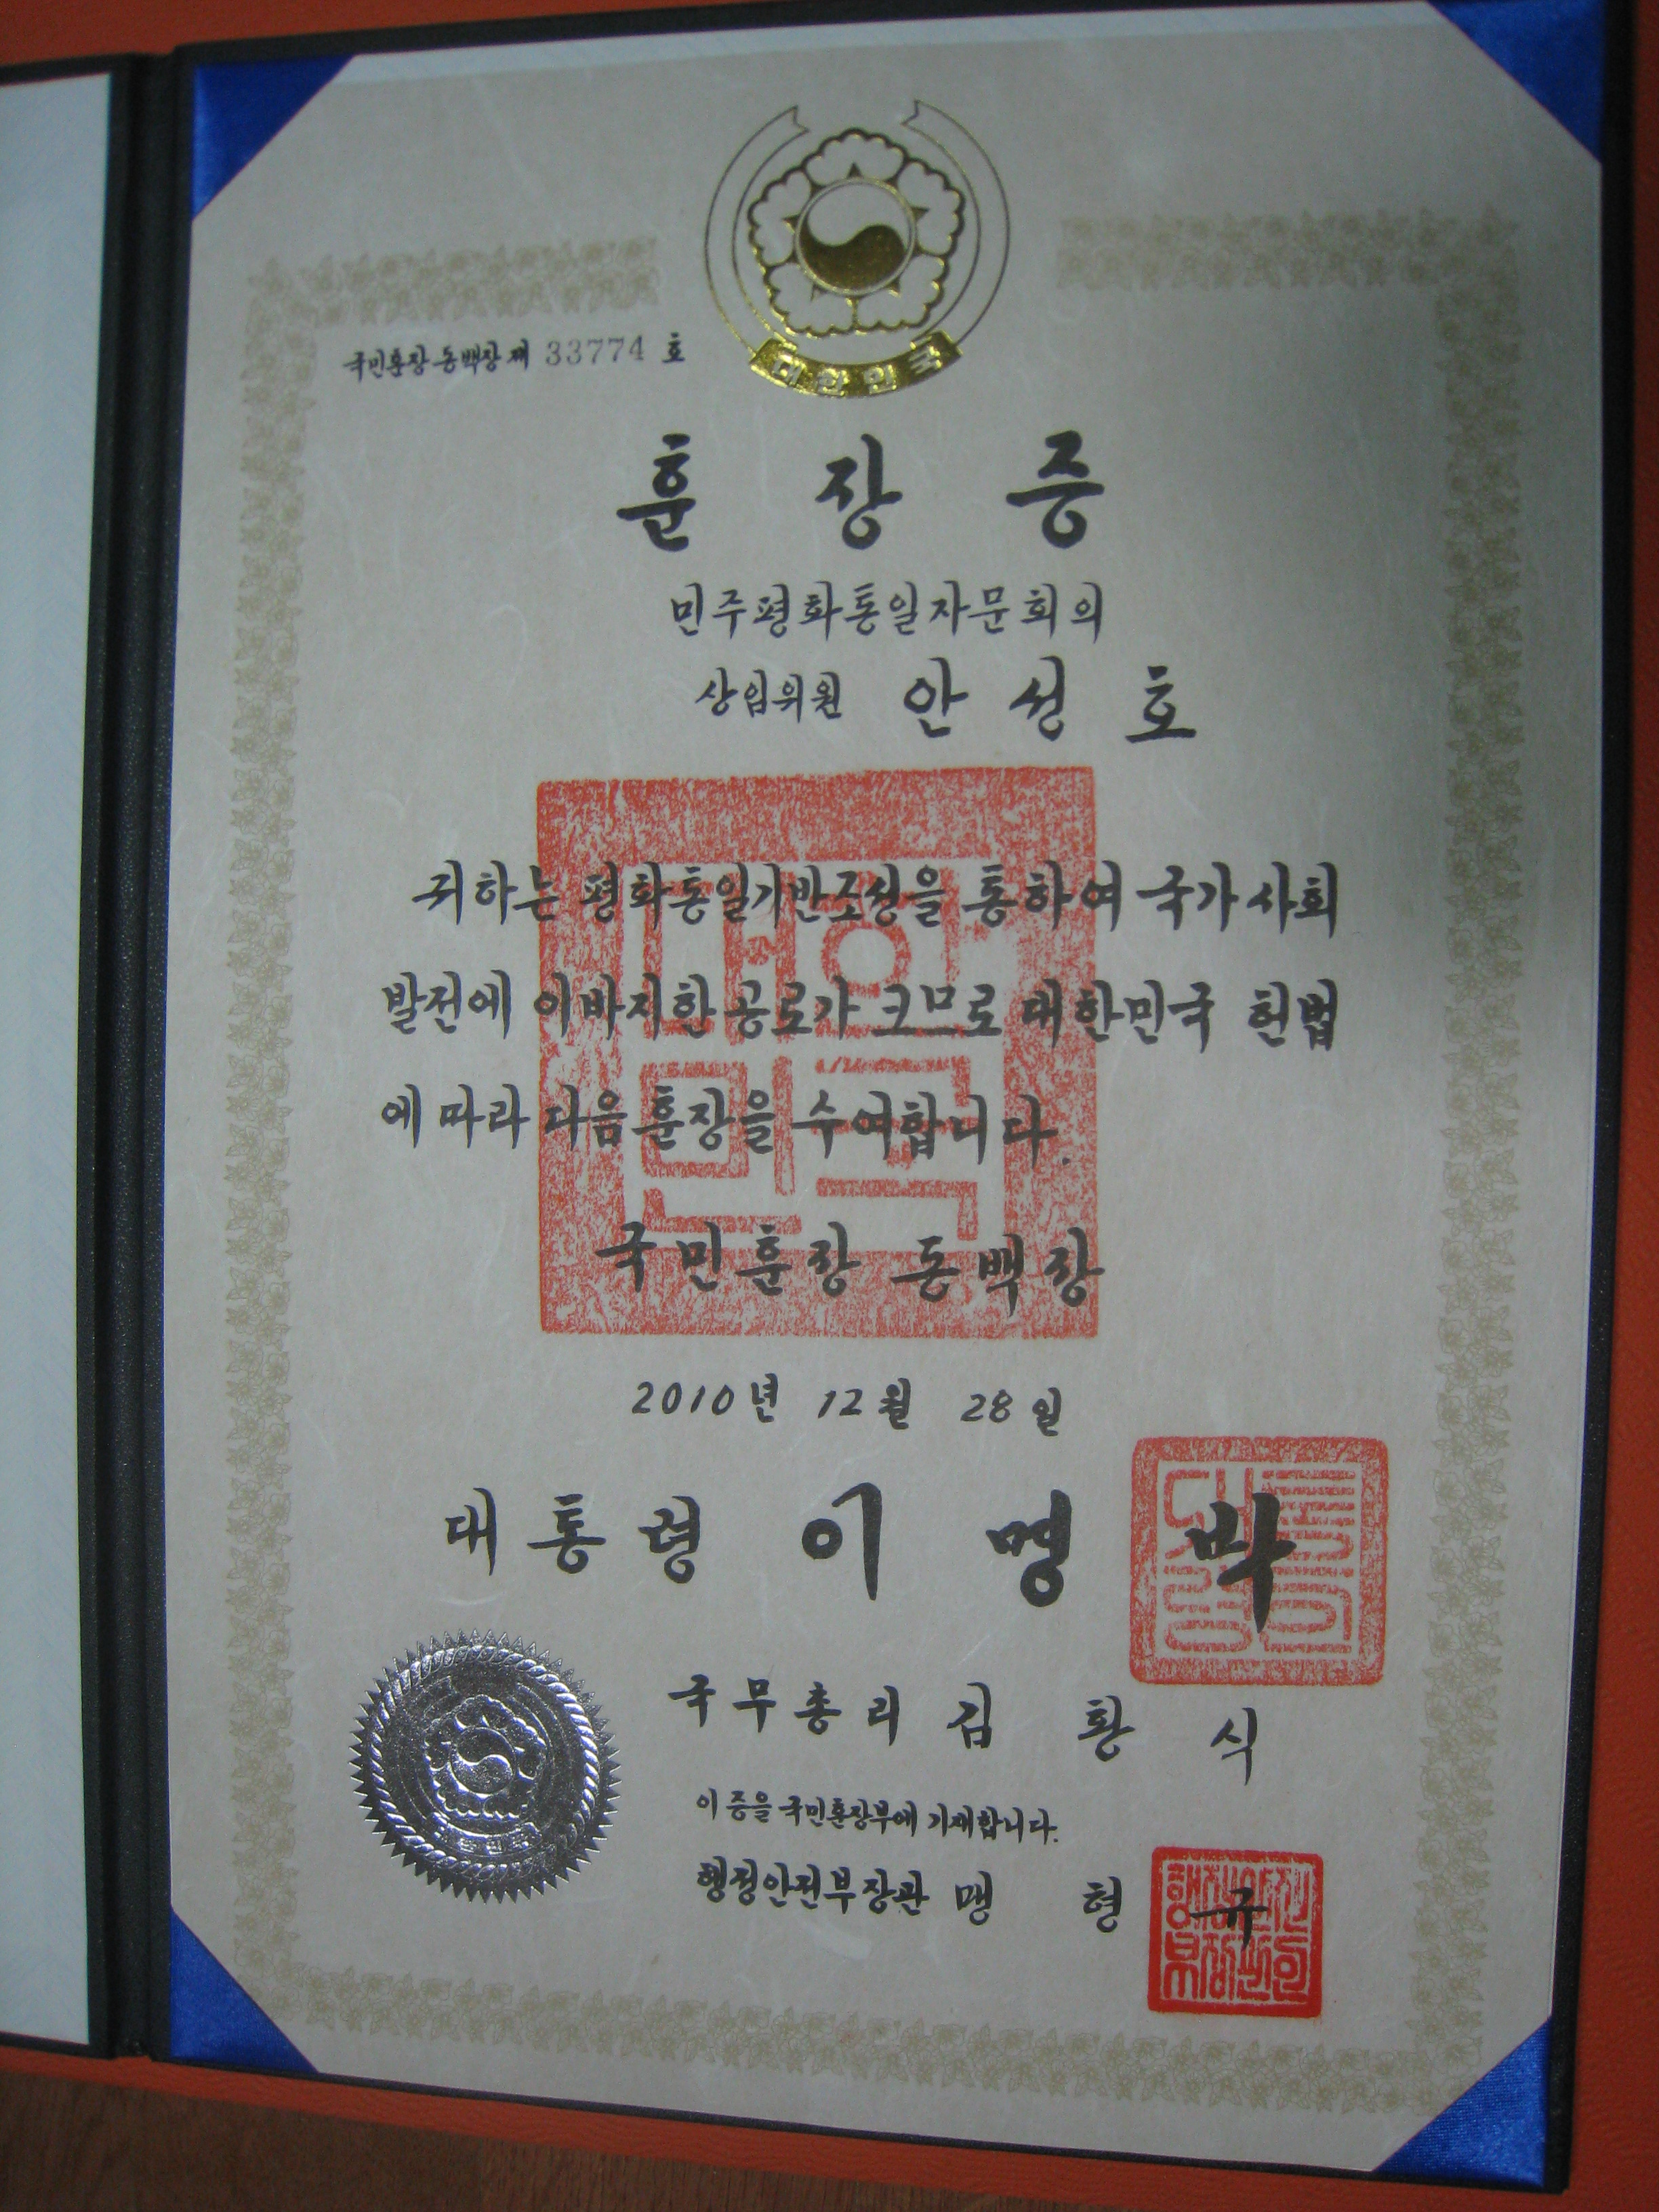 대한민국
국민훈장 동백장 제 33774 호
훈장증
민주평화통일자문회의
상임위원 안성호
귀하는 평화통일기반조성을 통하여 국가사회
발전에 이바지한 공로가 크므로 대한민국 헌법
에 따라 다음 훈장을 수여합니다.
국민훈장 동백장
2010년 12월 28일
대통령 이명박
국무총리 김황식
이 증을 국민훈장부에 기재합니다.
행정안전부장관 맹형규
대한민국